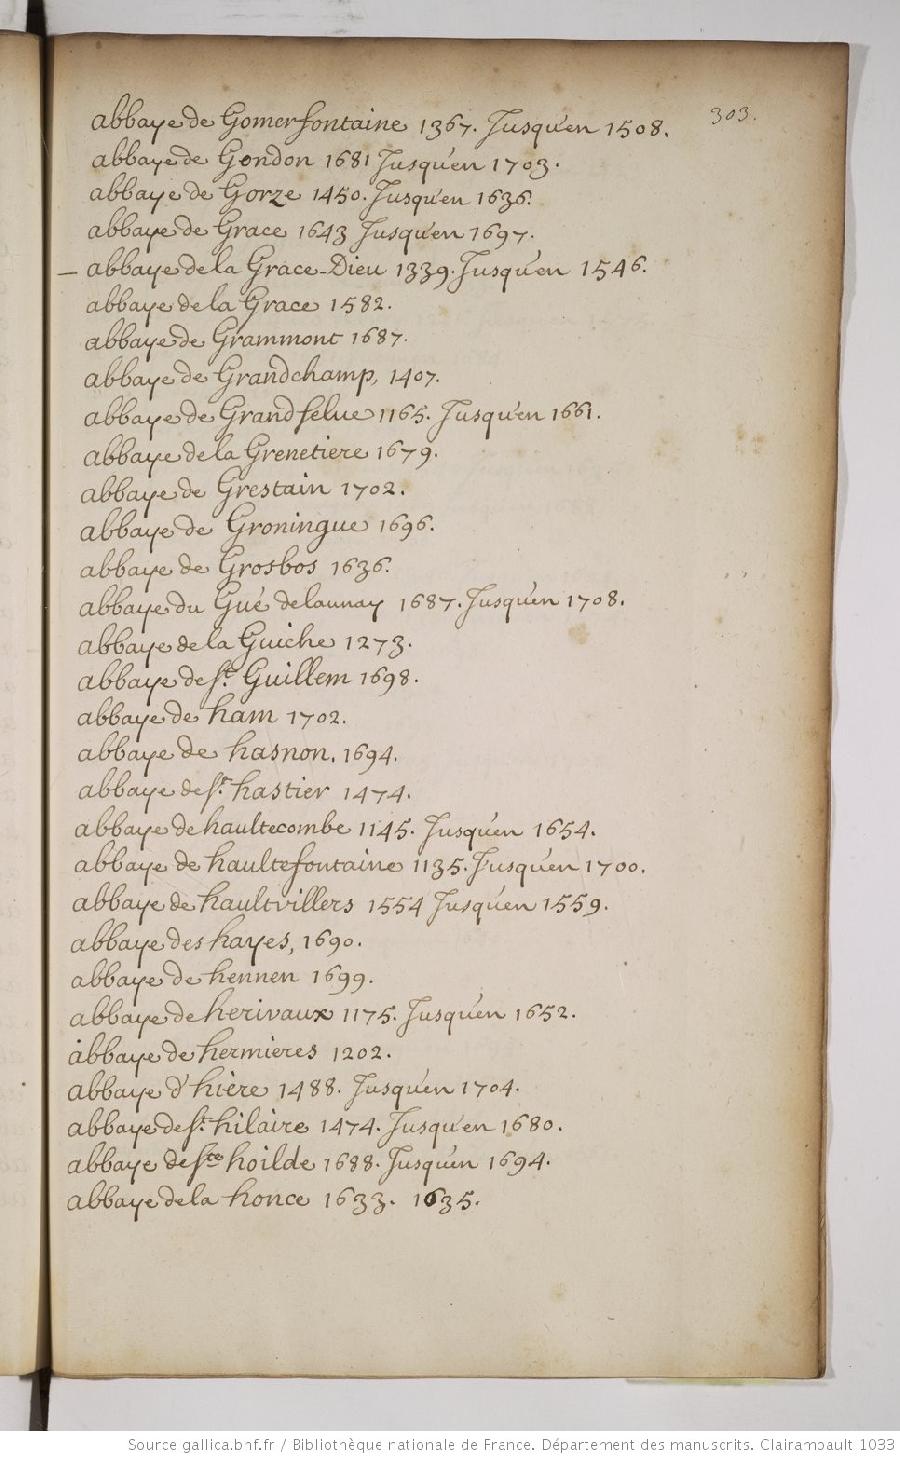 303.
abbaye de Gomerfontaine 1367. Jusqu'en 1508.
abbaye de Gondon 1681 Jusqu'en 1703.
abbaye de Gorze 1450. Jusqu'en 1636.
abbaye de Grace 1643 Jusqu'en 1697.
— abbaye de la Grace-Dieu 1339. Jusqu'en 1546.
abbaye de la Grace 1582.
abbaye de Grammont 1687.
abbaye de Grandchamp, 1407.
abbaye de Grandselue 1165. Jusqu'en 1661.
abbaye de la Grenetiere 1679.
abbaye de Grestain 1702.
abbaye de Groningue 1696.
abbaye de Grosbos 1636.
abbaye du Gué delaunay 1687. Jusqu'en 1708.
abbaye de la Guiche 1273.
abbaye de St. Guillem 1698.
abbaye de ham 1702.
abbaye de hasnon. 1694.
abbaye de St. hastier 1474.
abbaye de haultecombe 1145. Jusqu'en 1654.
abbaye de haultefontaine 1135. Jusqu'en 1700.
abbaye de haultvillers 1554 Jusqu'en 1559.
abbaye des hayes, 1690.
abbaye de hennen 1699.
abbaye de herivaux 1175. Jusqu'en 1652.
abbaye de hermieres 1202.
abbaye d'hière 1488. Jusqu'en 1704.
abbaye de St. hilaire 1474. Jusqu'en 1680.
abbaye de Ste hoilde 1688. Jusqu'en 1694.
abbaye de la honce 1633. 1635.
Source gallica.bnf.fr / Bibliothèque nationale de France. Département des manuscrits. Clairambault 1033